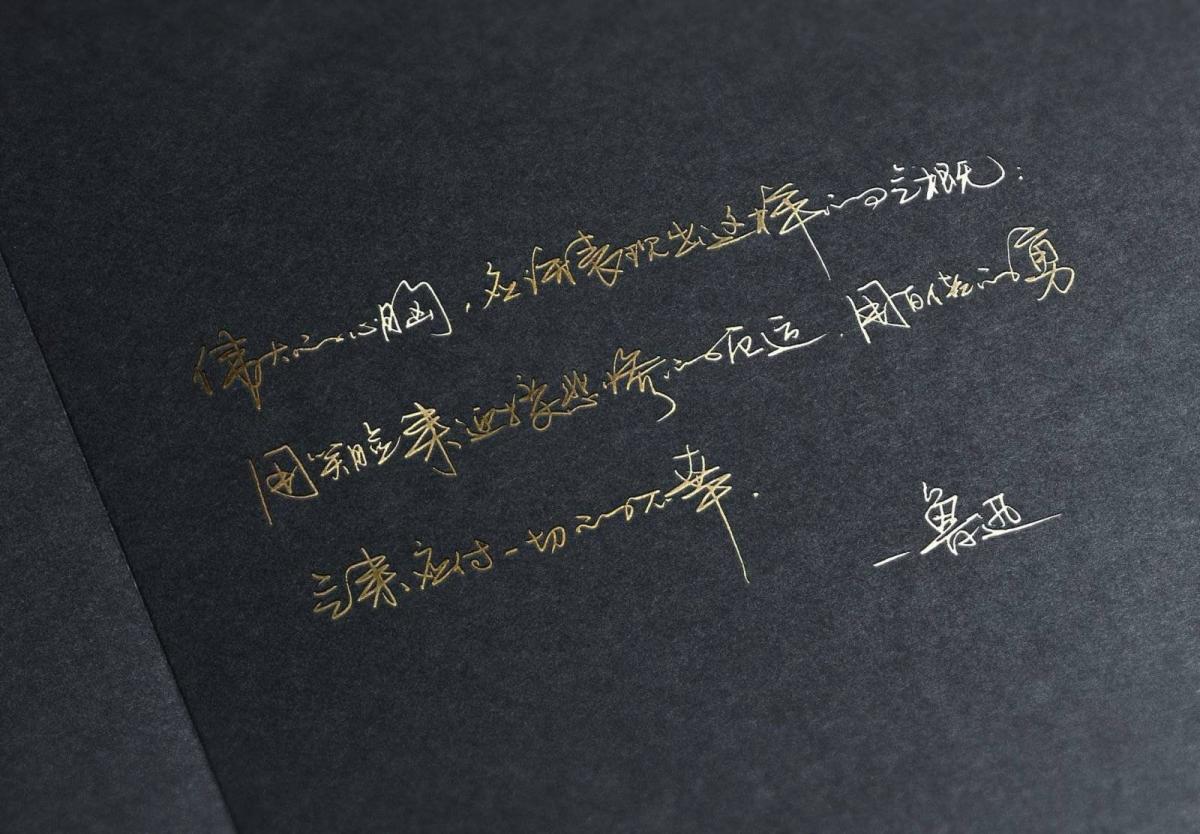 伟大的心胸，应该表现出这样的气概：
用笑脸来迎接悲惨的厄运，用百倍的勇
气来应付一切的不幸.
—鲁迅